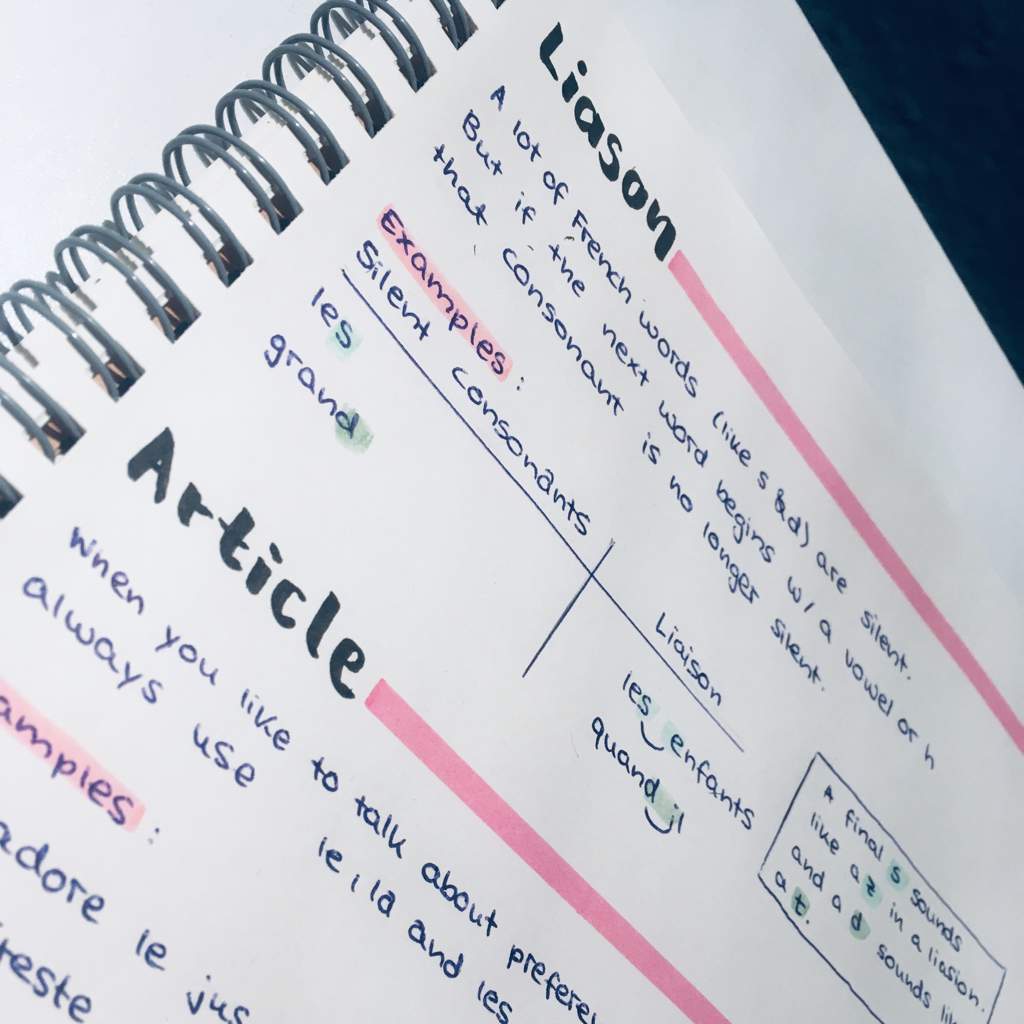 Liason
A lot of French words (like s & d) are silent.
But if the next word begins w/ a vowel or h
that consonant is no longer silent.
Examples:
Silent consonants
Liaison
les
les enfants
grand
quand il
A final s sounds
like a z in a liasion.
and a d sounds
a t.
Article
When you like to talk about
always use ie, la and les
:
adore le